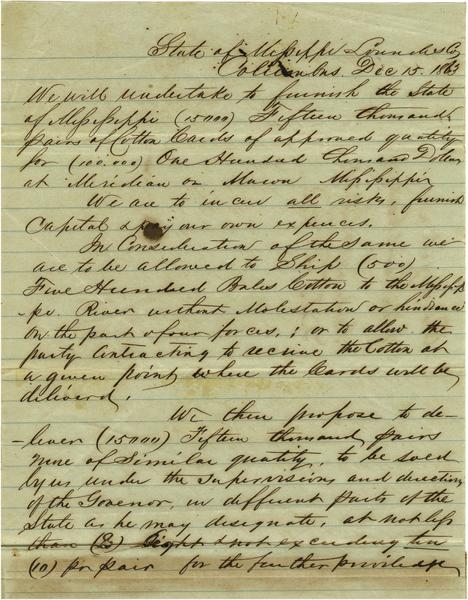 State of Missippi Lowndes Co
Columbus. Dec 15. 1863
We will undertake to furnish the State
of Missippi (15000) Fifteen thousand
pairs of Cotton Cards of approved quality
for (100.000) One Hundred thousand Dollars
at Meridian or Macon Missippi
We are to incur all risks, furnish
Capital & pay our own expences.
In Consideration of the same we
are to be allowed to Ship (500)
Five Hundred Bales Cotton to the Missip-
-pi River without Molestation or hindrance
on the part of our forces, ; or to allow the
party Contracting to receive the Cotton at
a given point where the Cards will be
deliverd.
We then propose to de-
-liver (15000) Fifteen thousand pairs
more of Similar quality, to be sold
by us under the Supervisions and direction
of the Govenor, in different parts of the
State as he may designate, at not less
than (8) Eight & not exceeding ten
(10) per pair for the further priviledge